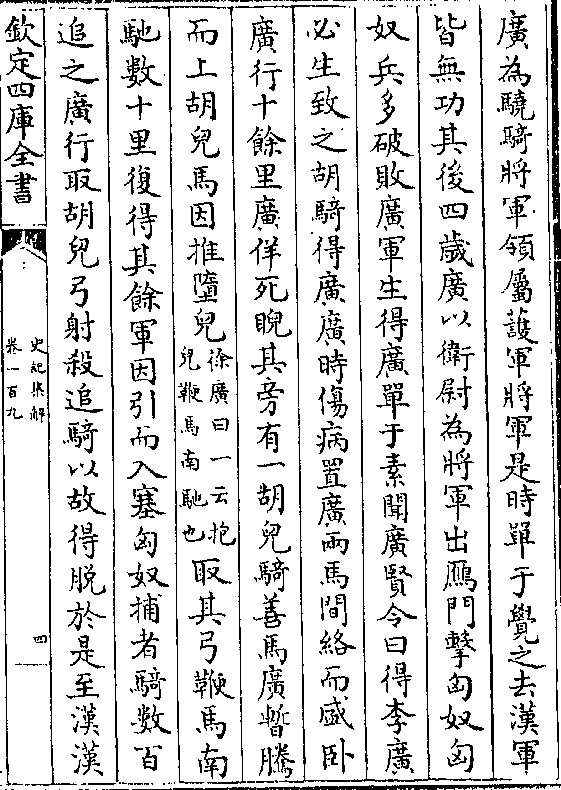 廣為驍騎將軍領屬護軍將軍是時單于覺之去漢軍
皆無功其後四歲廣以衛尉為將軍出鴈門擊匈奴匈
奴兵多破敗廣軍生得廣單于素聞廣賢令曰得李廣
必生致之胡騎得廣廣時傷病置廣兩馬間絡而盛卧
廣行十餘里廣佯死睨其旁有一胡兒騎善馬廣暫騰
而上胡兒馬因推墮兒徐廣曰一云抱兒鞭馬南馳也取其弓鞭馬南
馳數十里復得其餘軍因引而入塞匈奴捕者騎數百
追之廣行取胡兒弓射殺追騎以故得脫於是至漢漢
欽定四庫全書
史記集解
卷一百九
四